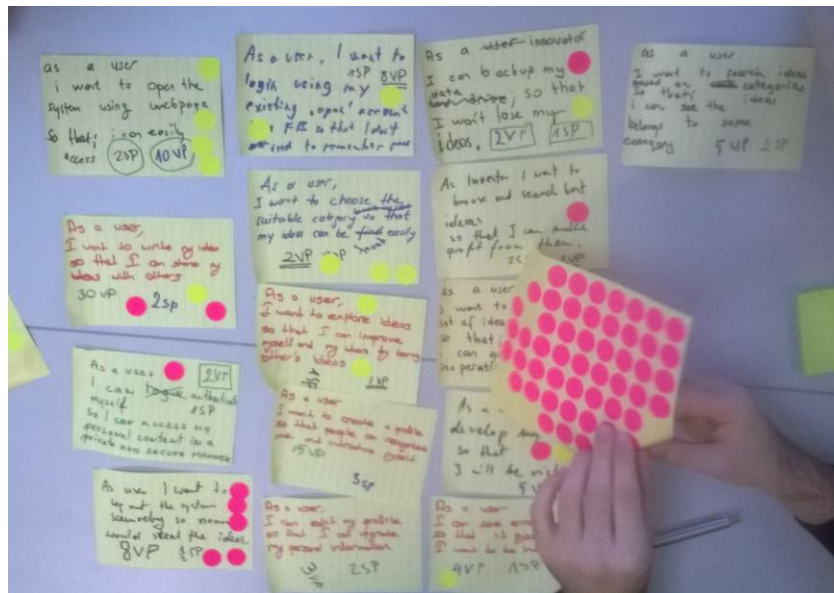 as a user
i want to open the
system using webpage
so that; i can easily
access 2SP 10VP
As a user, I want to
login using my 1SP 8VP
existing account
FB so that I don't
need to remember
As a user innovator
I can backup my
data, so that
I won't lose my
ideas. 2VP 1SP
as a user
I want to search ideas
categories
so that;
i can see the ideas
belongs to same
category 5 VP 2SP
As a user,
I want to write my idea
so that I can share my
ideas with others
30 VP 2SP
As a user,
I want to choose the
suitable category so that
my idea can be easily
2VP
As Investor I want to
browse and search best
ideas
so that I can make
profit from them.
As a user,
I want to explore ideas
so that I can improve
myself and my ideas by
other's ideas
1VP
as a user
want to
list of idea
so that
i can
As a user 2VP
I can authenticate
myself 1SP
so I can access my
personal content in a
private and secure manner
As a user
I want to create a profile
so that people can recognize
me and
15VP
3SP
As a
develop my
so that
I will be rich
5V
As user I want to
log out the system
so
would steal the ideas.
8VP 1/2SP
As a user,
I can edit my profile
so that I can upgrade
my personal information
3VP 2SP
As a user:
I can
so that
I want to be
4VP 1SP